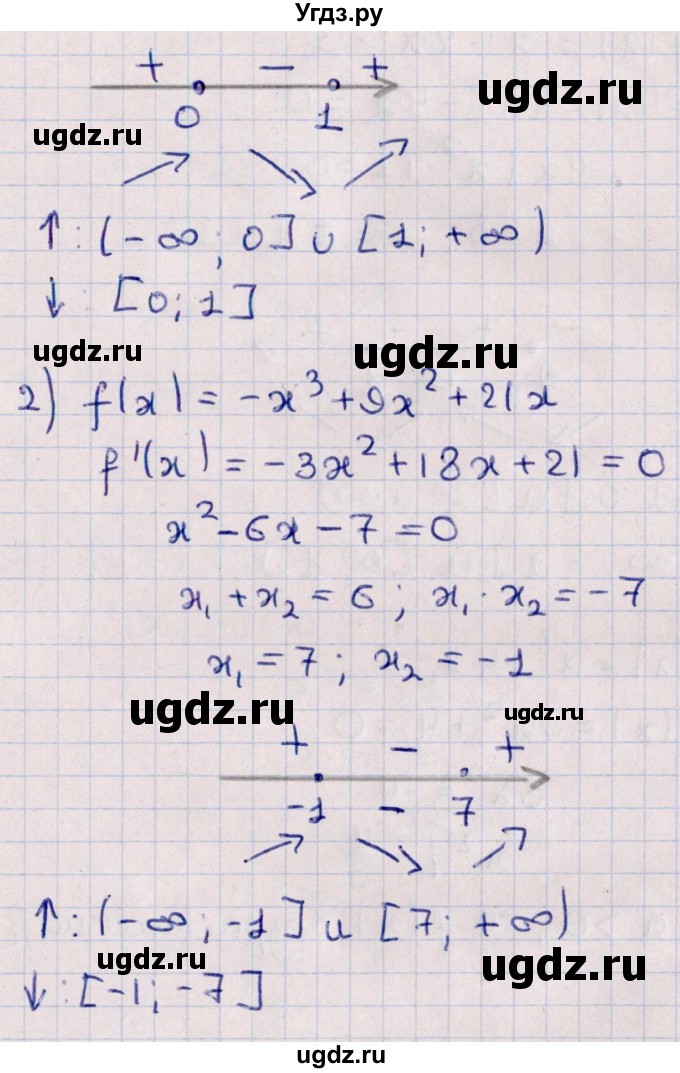 Угдз.ру
+ − +
ugdz.ru
0 1
ugdz.ru
↑: (−∞; 0] ∪ [1; +∞)
↓ : [0; 1]
ugdz.ru ugdz.ru
2) f(x) = −x³ + 9x² + 21x
f'(x) = −3x² + 18x + 21 = 0
x² − 6x − 7 = 0
x₁ + x₂ = 6; x₁ · x₂ = −7
x₁ = 7; x₂ = −1
ugdz.ru ugdz.ru
+ − +
−1 − 7
↑: (−∞; −1] ∪ [7; +∞)
ugdz.ru ugdz.ru
↓: [−1; −7]
ugdz.ru